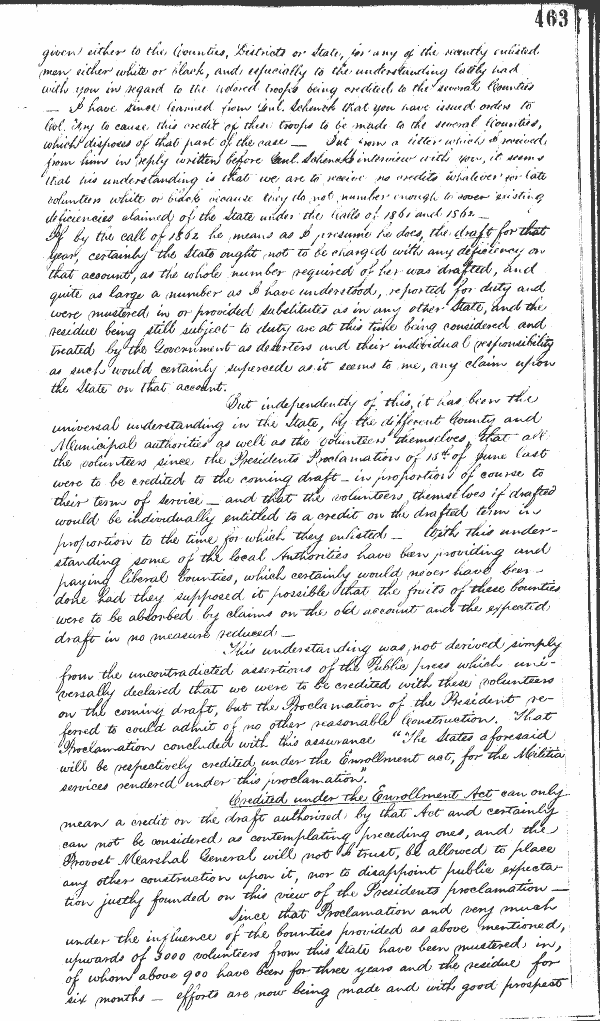 463
given either to the Counties, Districts or State, for any of the recently enlisted
men either white or black, and especially to the understanding lately had
with you in regard to the colored troops being credited to the several Counties
— I have since learned from Genl. Schenck that you have issued orders to
Col. Fry to cause this credit of these troops to be made to the several Counties,
which disposes of that part of the case — But from a letter which I received
from him in reply written before Genl. Schenck's interview with you, it seems
that his understanding is that we are to receive no credits whatever for late
volunteers white or black because they do not number enough to cover existing
deficiencies claimed of the State under the Calls of 1861 and 1862 —
If by the call of 1862 he means as I presume he does, the draft for that
year, certainly the State ought not to be charged with any deficiency on
that account, as the whole number required of her was drafted, and
quite as large a number as I have understood, reported for duty and
were mustered in or provided substitutes as in any other State, and the
residue being still subject to duty are at this time being considered and
treated by the Government as deserters and their individual responsibility
as such would certainly supercede as it seems to me, any claim upon
the State on that account.
But independently of this, it has been the
universal understanding in the State, by the different County and
Municipal authorities as well as the volunteers themselves, that all
the volunteers since the Presidents Proclamation of 15th of June last
were to be credited to the coming draft — in proportion of course to
their term of service — and that the volunteers themselves if drafted
would be individually entitled to a credit on the drafted term in
proportion to the time for which they enlisted — With this under-
standing some of the local Authorities have been providing and
paying liberal bounties, which certainly would never have been
done had they supposed it possible that the fruits of these bounties
were to be absorbed by claims on the old account and the expected
draft in no measure reduced —
This understanding was not derived simply
from the uncontradicted assertions of the Public press which uni-
versally declared that we were to be credited with these volunteers
on the coming draft, but the Proclamation of the President re-
ferred to could admit of no other reasonable Construction. That
Proclamation concluded with this assurance "The States aforesaid
will be respectively credited under the Enrollment act, for the Militia
services rendered under this proclamation.
Credited under the Enrollment Act can only
mean a credit on the draft authorized by that Act and certainly
can not be considered as contemplating preceding ones, and the
Provost Marshal General will not I trust, be allowed to place
any other construction upon it, nor to disappoint public expecta-
tion justly founded on this view of the Presidents proclamation —
Since that Proclamation and very much
under the influence of the bounties provided as above mentioned,
upwards of 3000 volunteers from this State have been mustered in,
of whom above 900 have been for three years and the residue for
six months — efforts are now being made and with good prospect